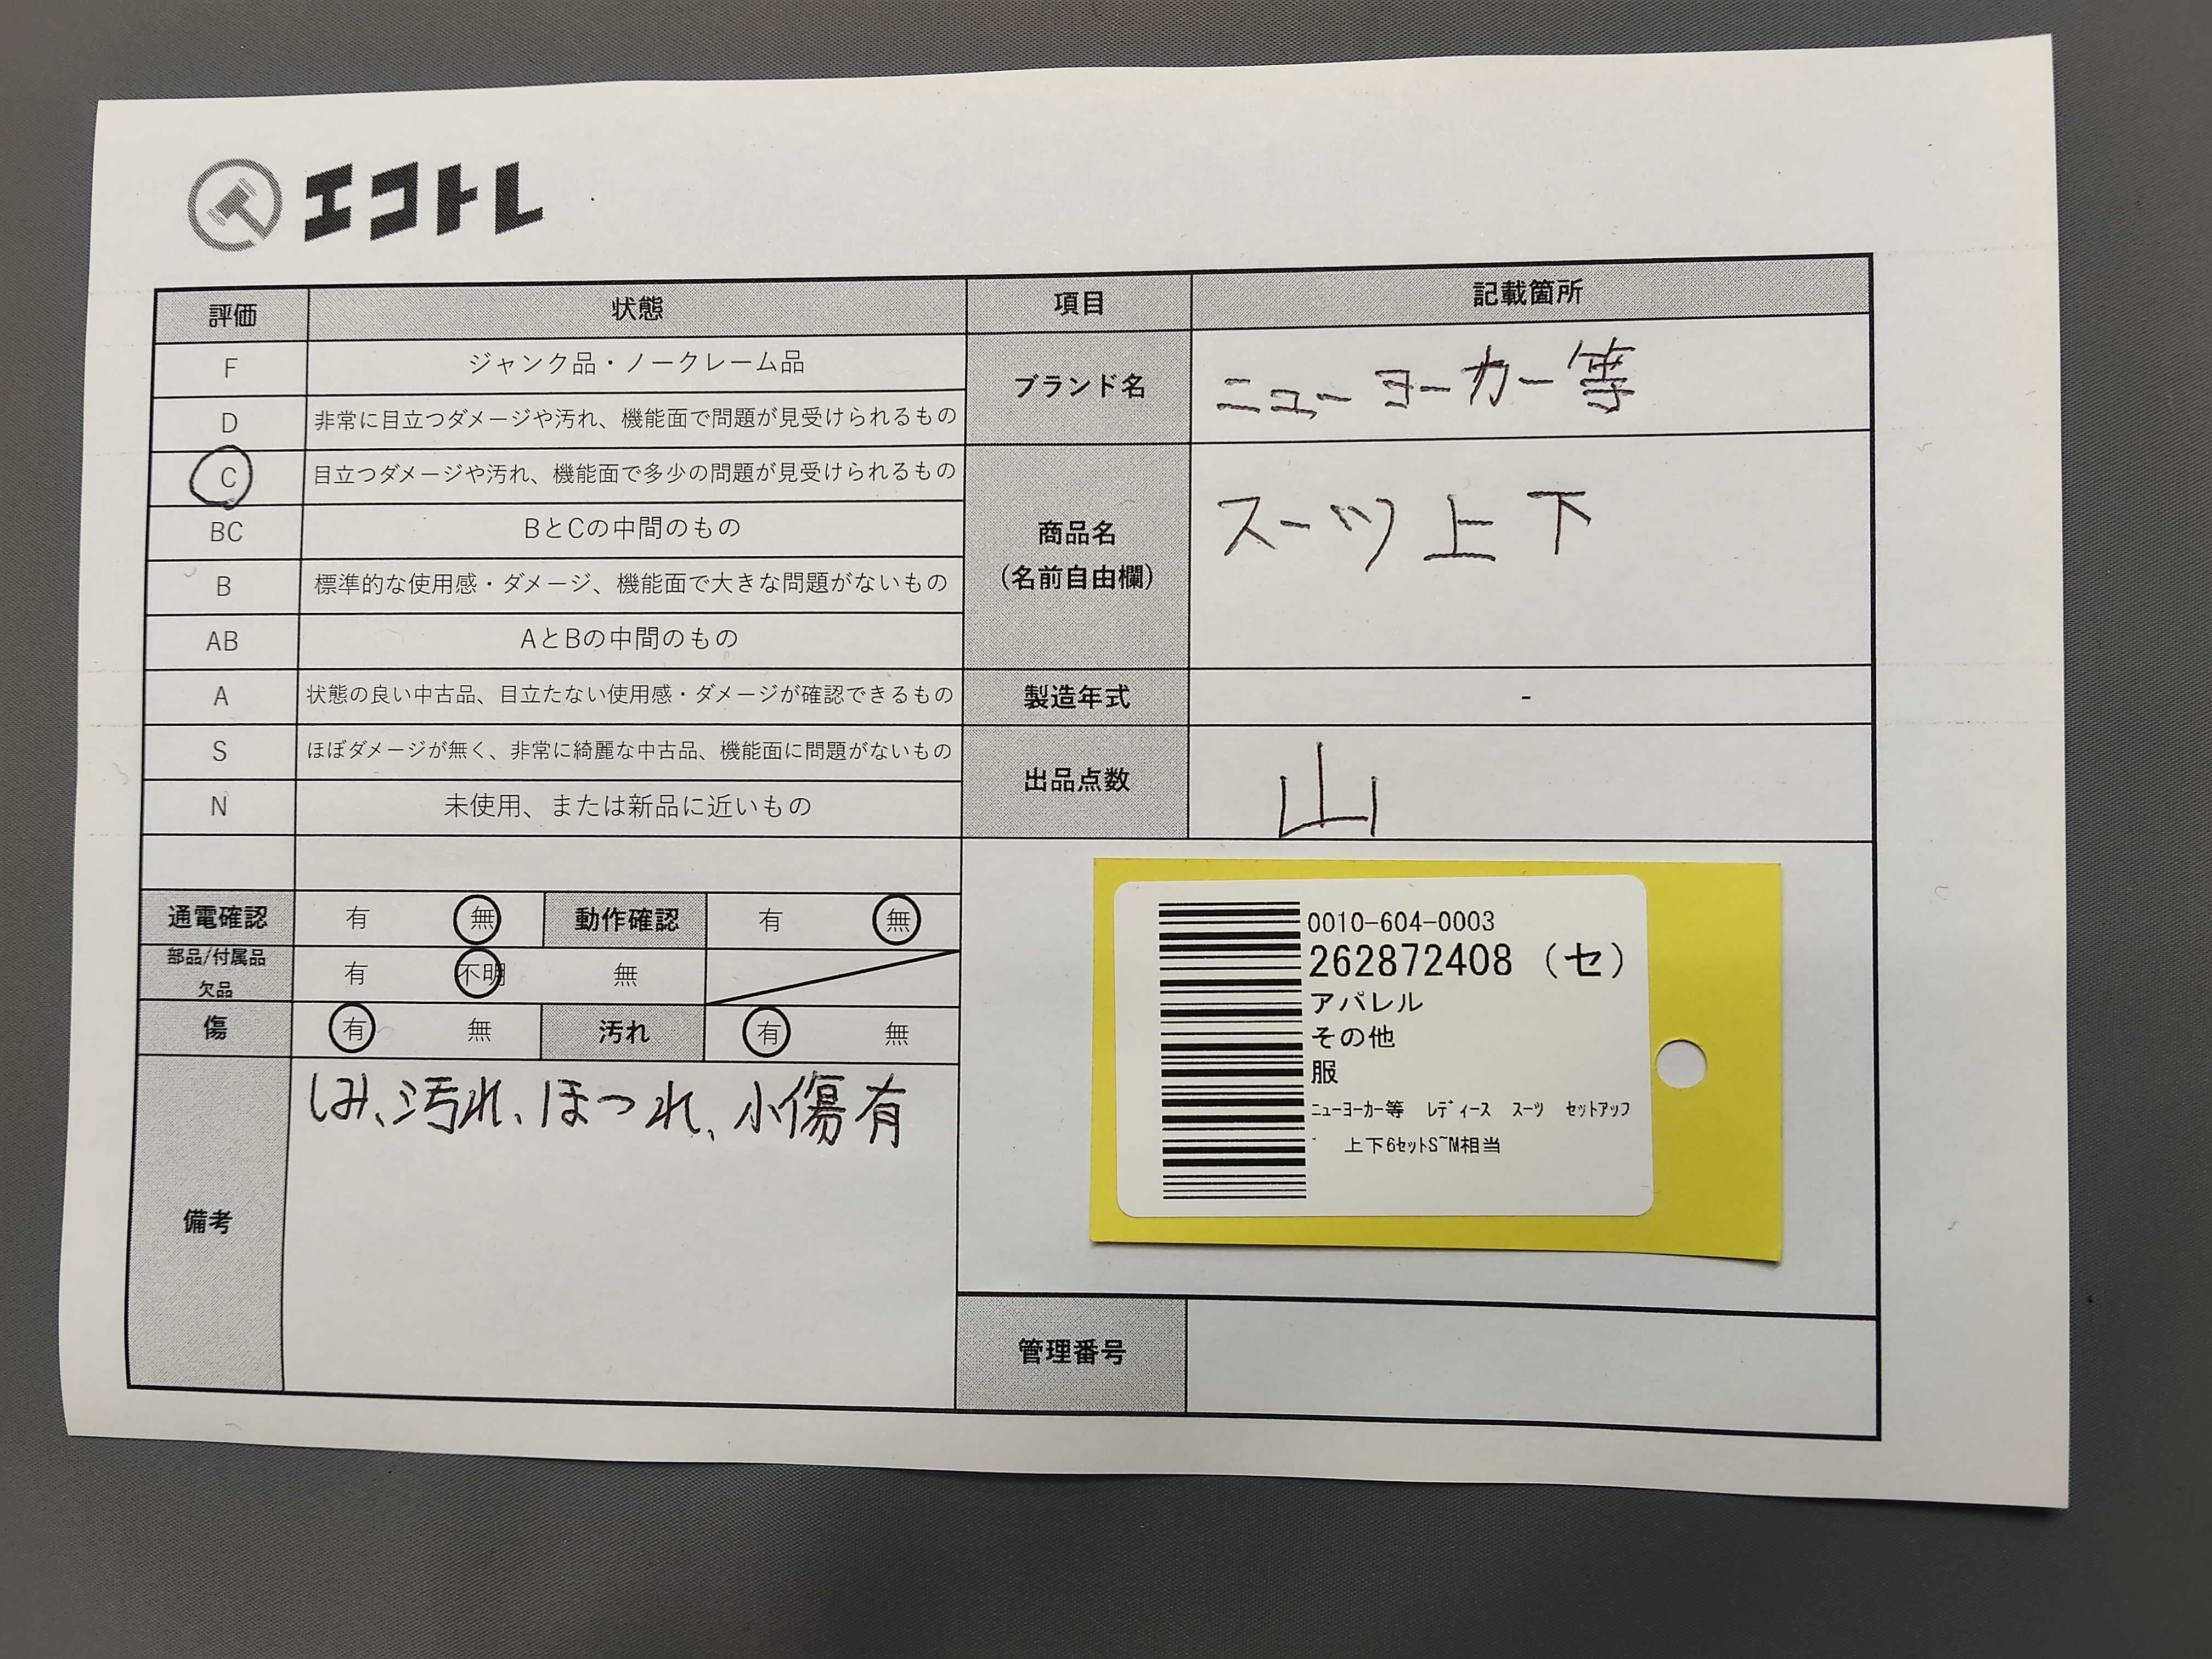 エコトレ
評価 状態 項目 記載箇所
F ジャンク品・ノークレーム品
D 非常に目立つダメージや汚れ、機能面で問題が見受けられるもの
C 目立つダメージや汚れ、機能面で多少の問題が見受けられるもの
BC BとCの中間のもの
B 標準的な使用感・ダメージ、機能面で大きな問題がないもの
AB AとBの中間のもの
A 状態の良い中古品、目立たない使用感・ダメージが確認できるもの
S ほぼダメージが無く、非常に綺麗な中古品、機能面に問題がないもの
N 未使用、または新品に近いもの
ブランド名 ニューヨーカー等
商品名
(名前自由欄)
スーツ上下
製造年式 -
出品点数 山
通電確認 有 無 動作確認 有 無
部品/付属品
欠品
有 不明 無
傷 有 無 汚れ 有 無
備考
しみ、汚れ、ほつれ、小傷有
0010-604-0003
262872408 (セ)
アパレル
その他
服
ﾆｭｰﾖｰｶｰ等 ﾚﾃﾞｨｰｽ ｽｰﾂ ｾｯﾄｱｯﾌ
ﾟ 上下6ｾｯﾄS~M相当
管理番号